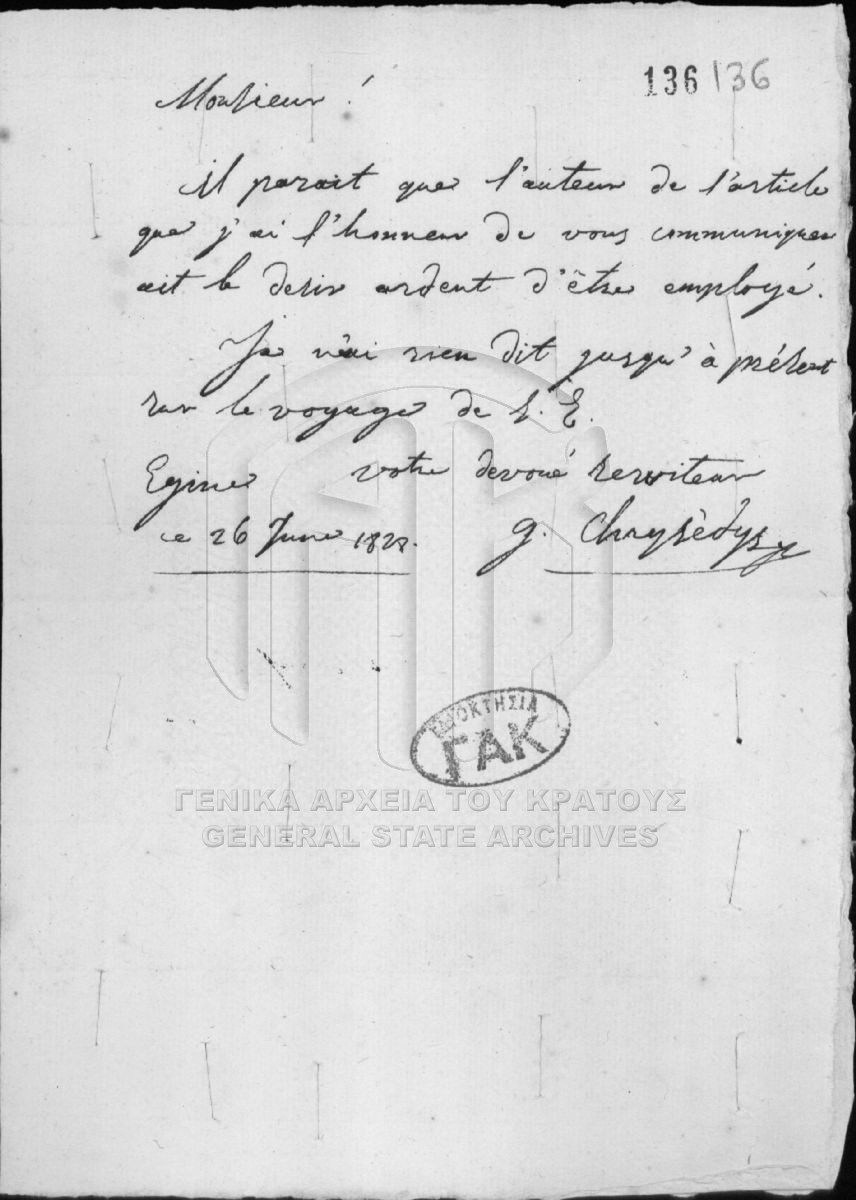 136 136
Monsieur!
Il parait que l'auteur de l'article
que j'ai l'honneur de vous communiquer
ait le desir ardent d'être employé.
Je n'ai rien dit jusqu'à présent
sur le voyage de S. E.
Egine votre devoué serviteur
ce 26 June 1828. G. Chrysèdys
ΙΔΙΟΚΤΗΣΙΑ
ΓΑΚ
ΓΕΝΙΚΑ ΑΡΧΕΙΑ ΤΟΥ ΚΡΑΤΟΥΣ
GENERAL STATE ARCHIVES